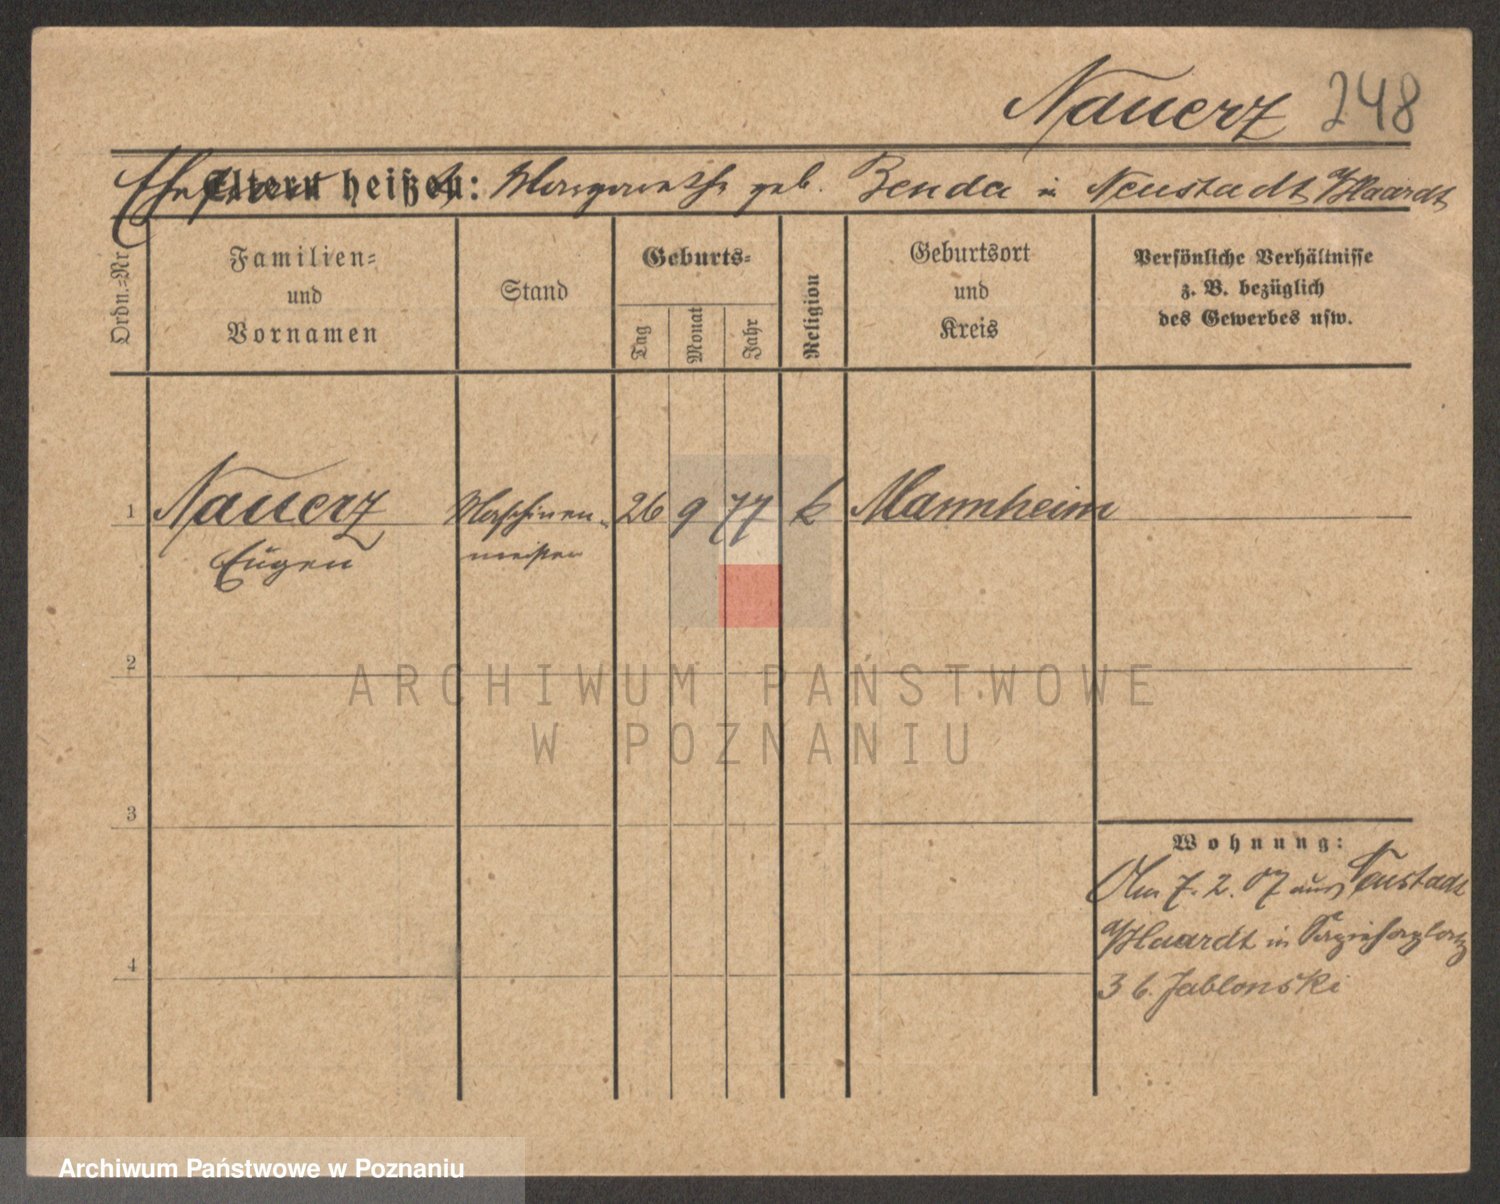 Nauerz 248
Eltern heißen: Margarethe geb. Benda in Neustadt a/Haardt
Ordn.=Nr
Familien=
und
Vornamen
Stand
Geburts=
Tag
Monat
Jahr
Religion
Geburtsort
und
Kreis
Persönliche Verhältnisse
z. B. bezüglich
des Gewerbes usw.
1 Nauerz Maschinen- 26 9 77 k Mannheim
Eugen meister
2
ARCHIWUM PAŃSTWOWE
W POZNANIU
3
Wohnung:
Am 7. 2. 07 aus Neustadt
a/Haardt in
4
3 b. Jablonski
Archiwum Państwowe w Poznaniu